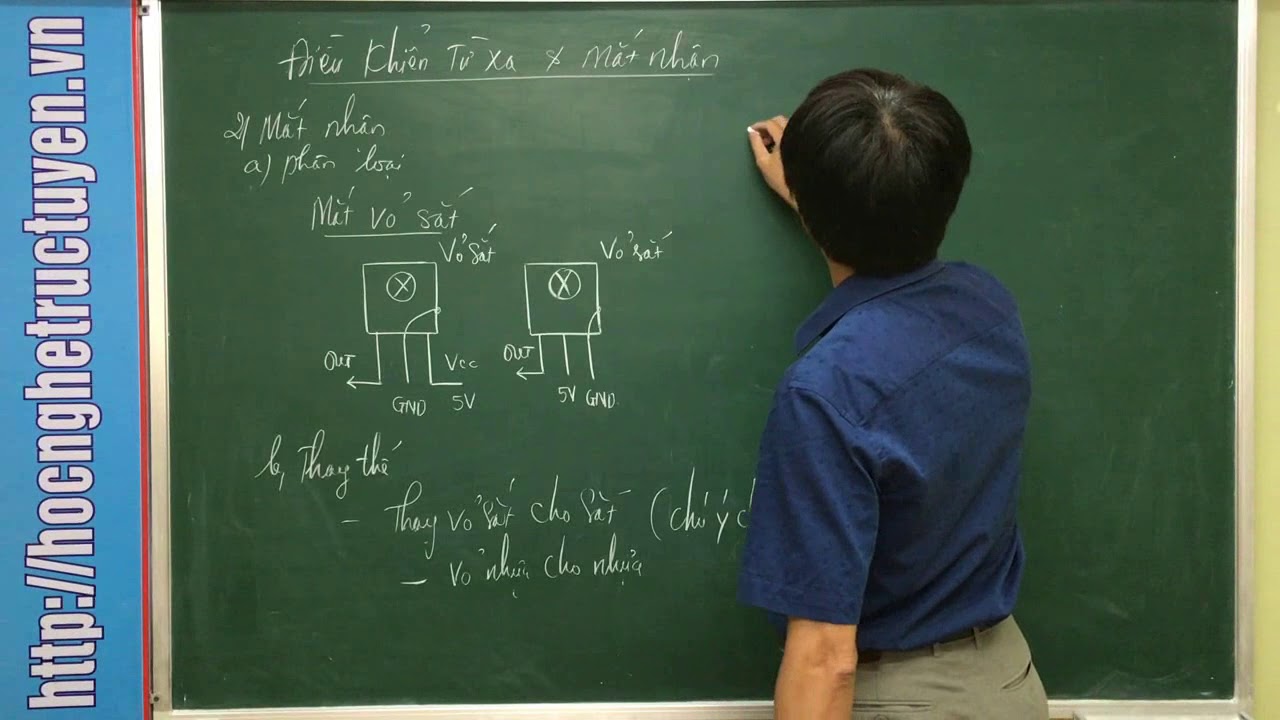 http://hocnghetructuyen.vn
Điều Khiển Từ Xa & Mắt nhận
2) Mắt nhận
a) phân loại
Mắt vỏ sắt
Vỏ sắt
Vỏ sắt
OUT
Vcc
GND
5V
OUT
5V
GND
b, Thay thế
- Thay vỏ sắt cho sắt (chú ý
- Vỏ nhựa cho nhựa